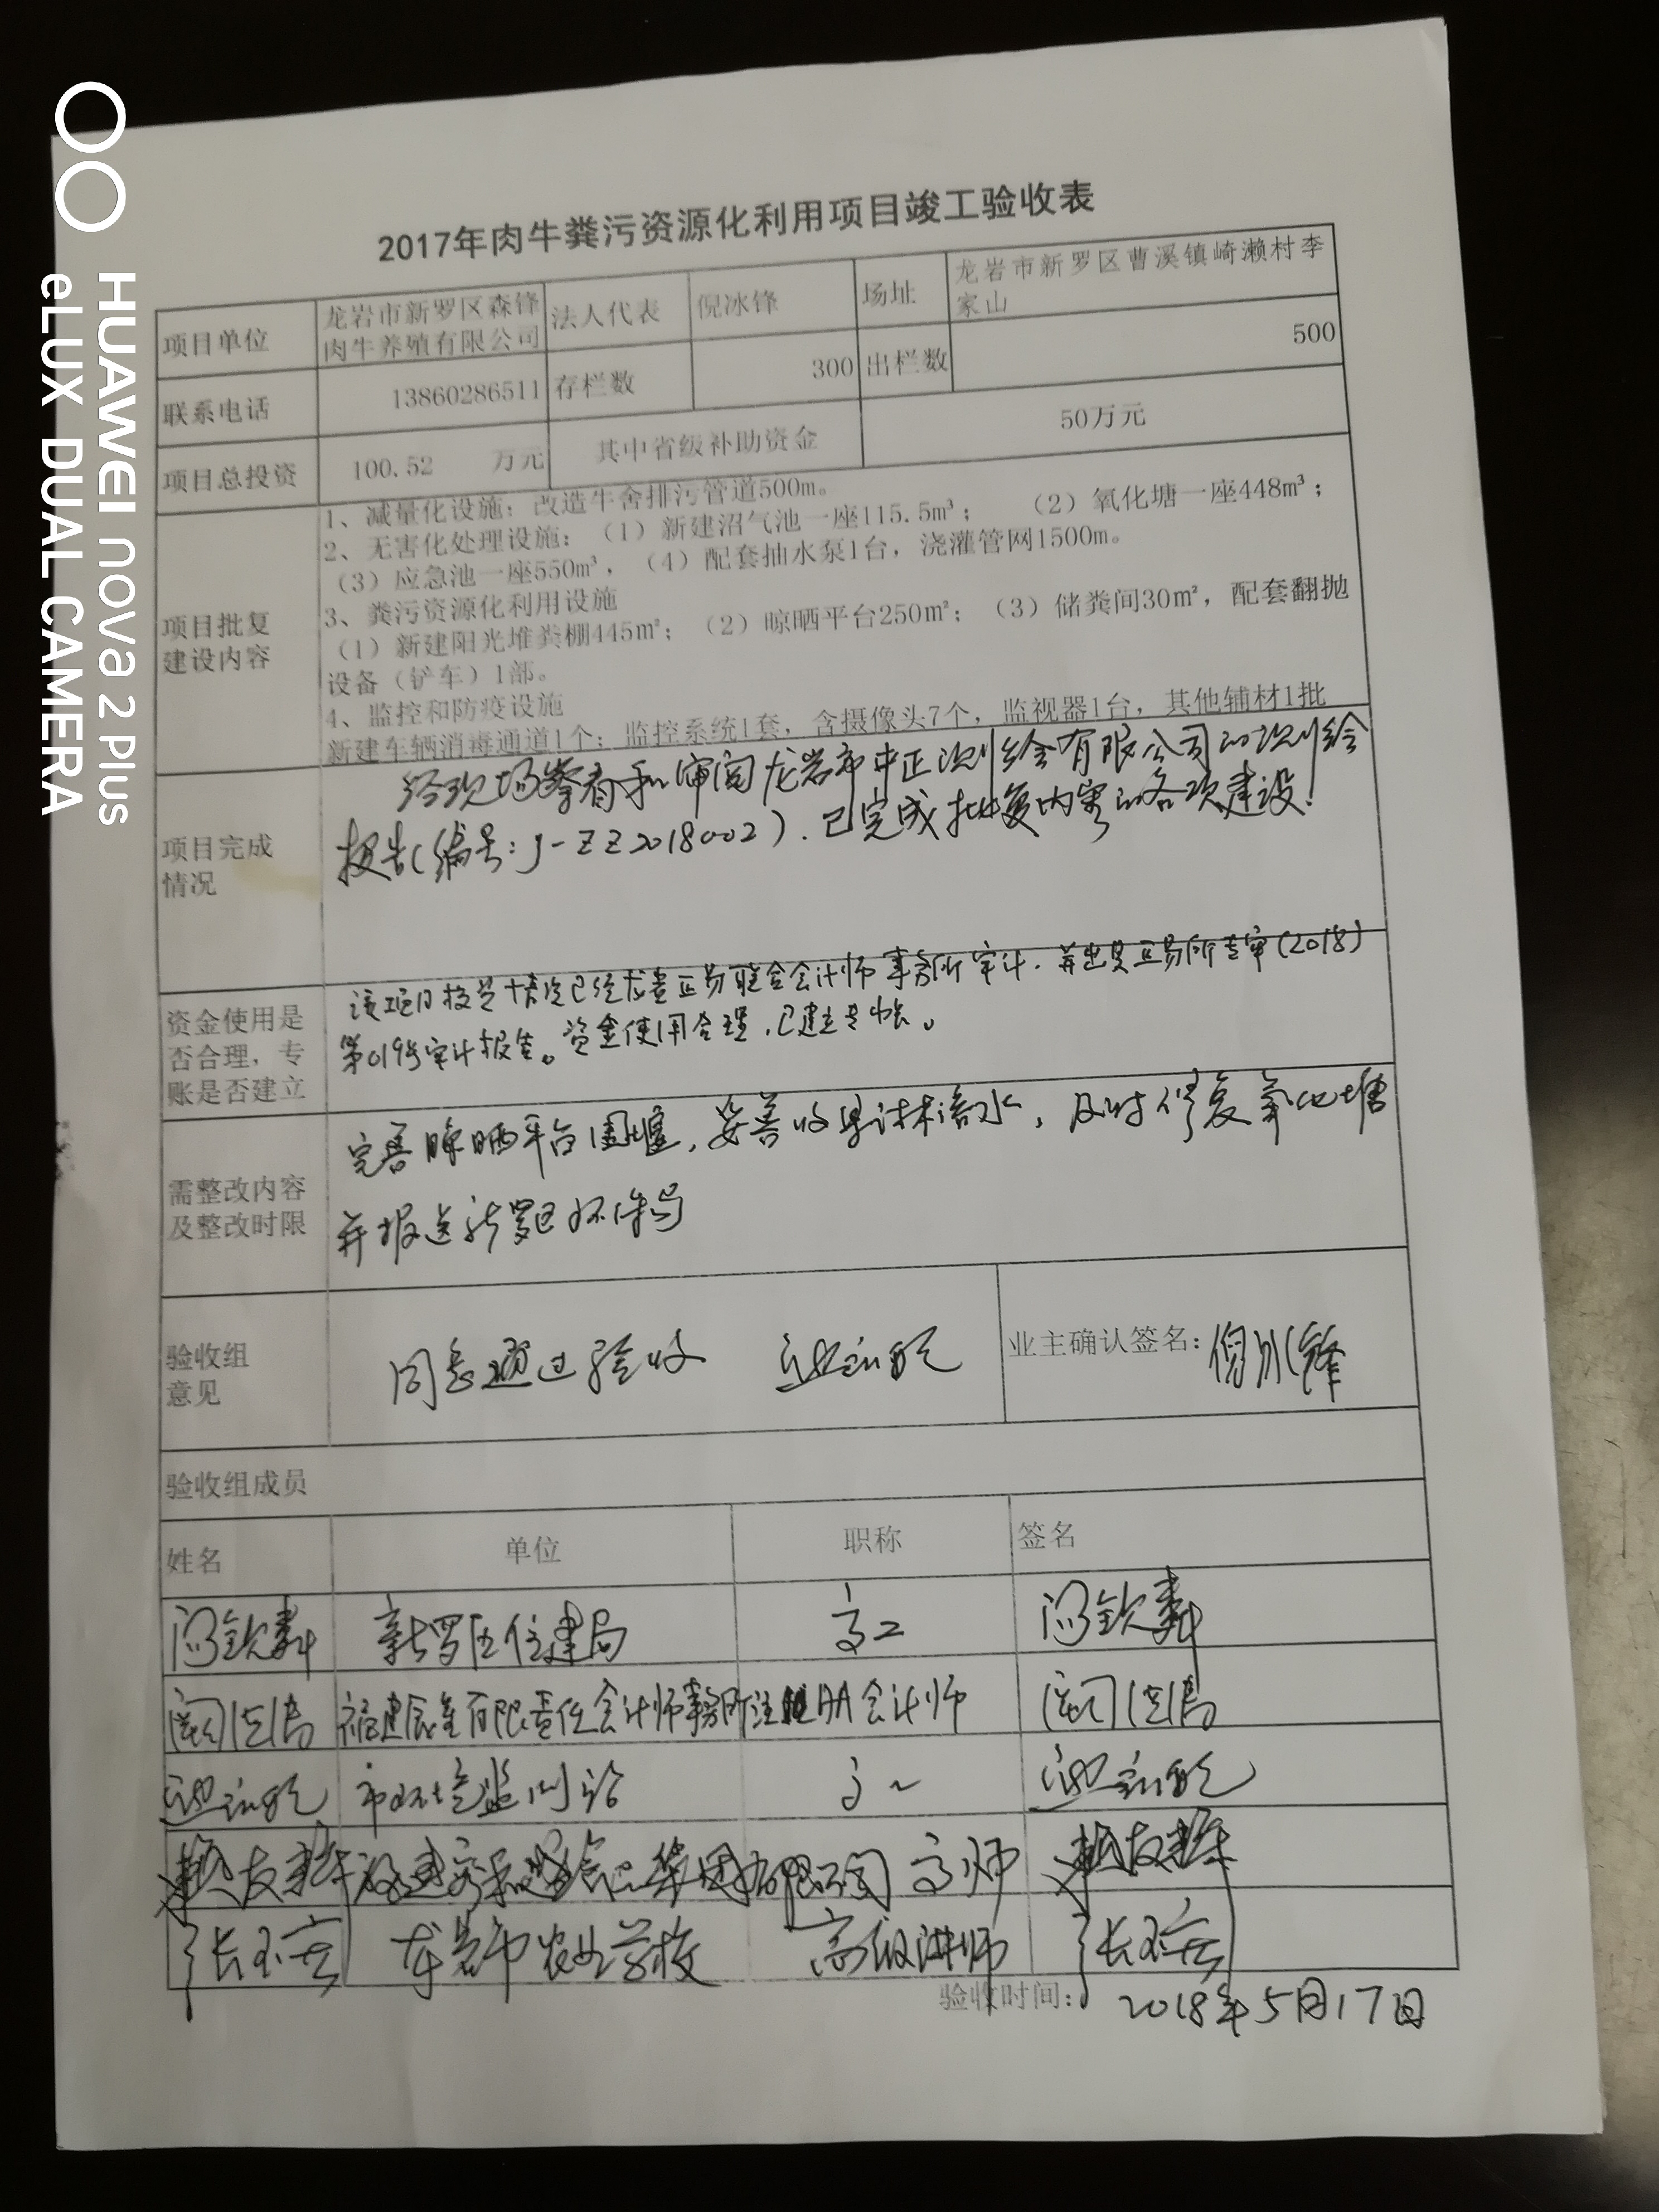 2017年肉牛粪污资源化利用项目竣工验收表
项目单位 龙岩市新罗区森锋肉牛养殖有限公司 法人代表 倪冰锋 场址 龙岩市新罗区曹溪镇崎濑村李家山
联系电话 13860286511 存栏数 300 出栏数 500
项目总投资 100.52 万元 其中省级补助资金 50万元
项目批复建设内容
1、减量化设施：改造牛舍排污管道500m。
2、无害化处理设施：（1）新建沼气池一座115.5m³； （2）氧化塘一座448m³；
（3）应急池一座550m³，（4）配套抽水泵1台，浇灌管网1500m。
3、粪污资源化利用设施
（1）新建阳光堆粪棚445m²；（2）晾晒平台250m²；（3）储粪间30m²，配套翻抛
设备（铲车）1部。
4、监控和防疫设施
新建车辆消毒通道1个；监控系统1套，含摄像头7个，监视器1台，其他辅材1批
项目完成情况
经现场察看和审阅龙岩市中正测绘有限公司的测绘
报告(编号:J-ZZ2018002).已完成批复内容的各项建设!
资金使用是否合理，专账是否建立
该项目投资情况已经龙岩正易联合会计师事务所审计.并出具正易所专审(2018)
第019号审计报告。资金使用合理,已建立专帐。
需整改内容及整改时限
完善晾晒平台围堰,妥善收集 渗水,及时修复氧化塘
并报送新罗区环保局
验收组意见
同意通过验收
业主确认签名：倪冰锋
验收组成员
姓名 单位 职称 签名
新罗区住建局 高工
福建 有限责任会计师事务所 注册会计师
市环境监测站 高工
福建 有限公司 高师
龙岩市农业学校 高级讲师
验收时间：2018年5月17日
HUAWEI nova 2 Plus
eLUX DUAL CAMERA